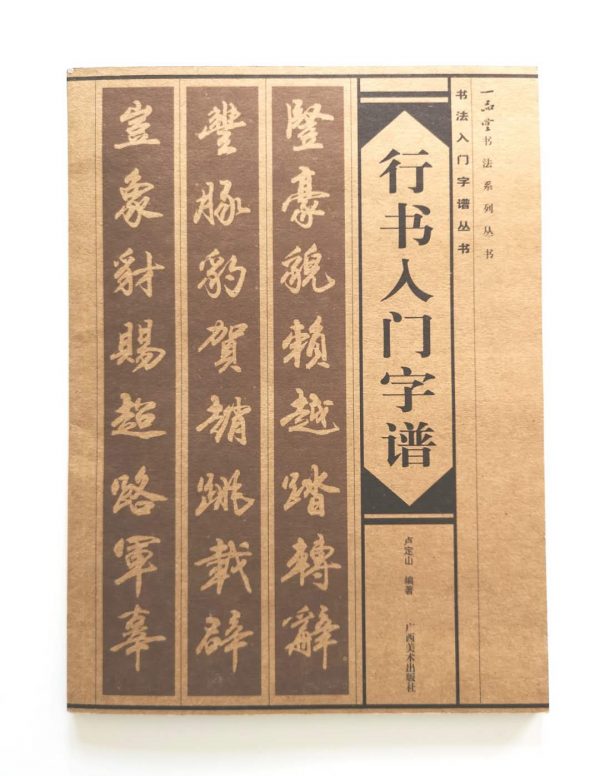 一品堂书法系列丛书
书法入门字谱丛书
行书入门字谱
卢定山 编著
广西美术出版社
豎豪貌賴越踏轉辭
豐豚豹賀趙跳載辟
豈象豺賜超路軍辜